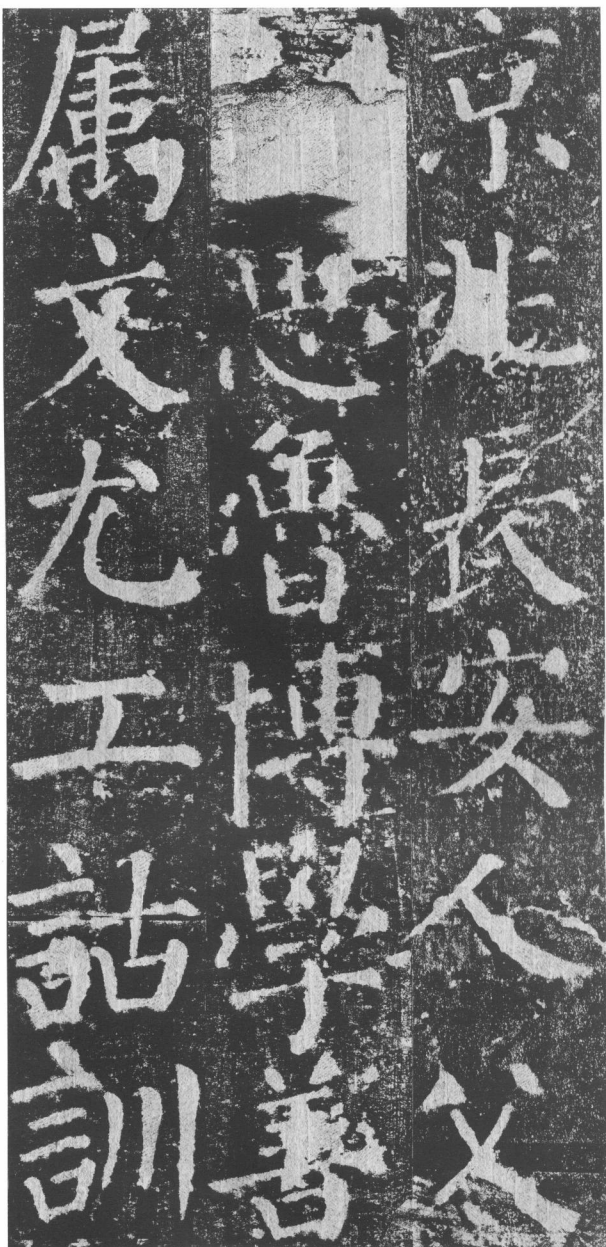 京兆長安人父
思魯博學善
属文尤工詁訓